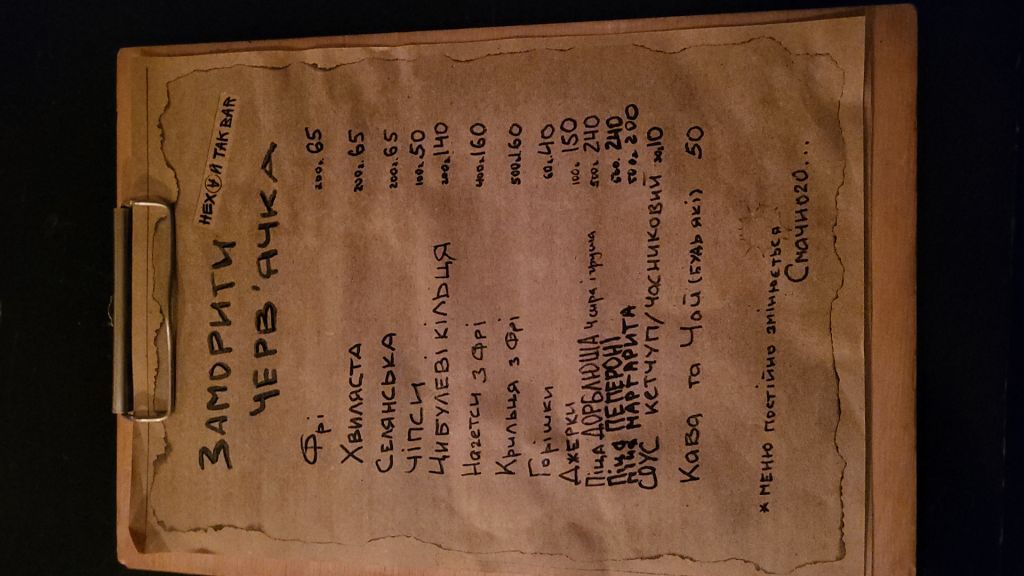 ЗАМОРИТИ
ЧЕРВ'ЯЧКА
НЕХАЙ ТАК BAR
Фрі 200г. 65
ХВИЛЯСТА 200г. 65
СЕЛЯНСЬКА 200г. 65
ЧІПСИ 100г. 50
ЦИБУЛЕВІ КІЛЬЦЯ 200г. 140
Нагетси З ФРІ 400г. 160
Крильця З Фрі 500г. 160
Горішки 60г. 40
ДЖЕРКИ 100г. 150
Піца ДОРБЛЮША 4 сири і груша 500г. 240
Піца ПЕПЕРОНІ 500г. 240
Піца МАРГАРИТА 500г. 200
СОУС КЕТЧУП/ЧАСНИКОВИЙ 10
Кава та Чай (БУДЬ ЯКІ) 50
* МЕНЮ ПОСТІЙНО ЗМІНЮЄТЬСЯ
Смачного...